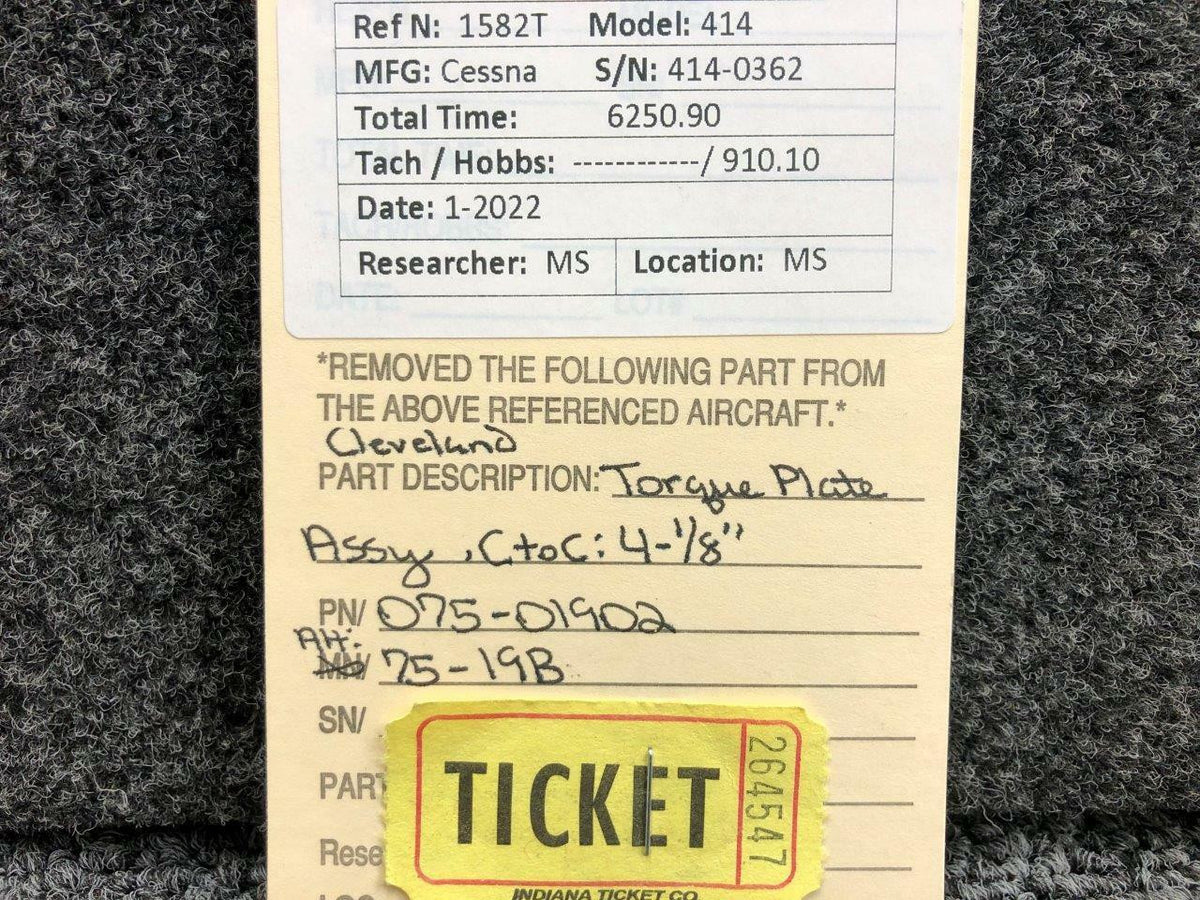 Ref N: 1582T Model: 414
MFG: Cessna S/N: 414-0362
Total Time: 6250.90
Tach / Hobbs: ------------/ 910.10
Date: 1-2022
Researcher: MS Location: MS
*REMOVED THE FOLLOWING PART FROM
THE ABOVE REFERENCED AIRCRAFT.*
Cleveland
PART DESCRIPTION: Torque Plate
Assy, CtoC: 4-1/8"
PN/ 075-01902
Alt:
MN/ 75-19B
SN/
PART
TICKET
264547
Rese
INDIANA TICKET CO.